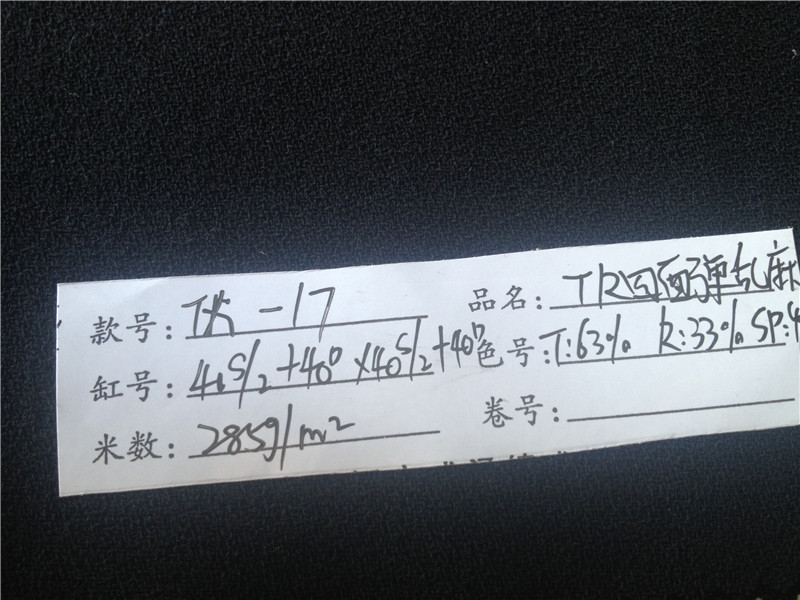 款号：TX-17 品名：TR四面弹乱麻
缸号：40S/2+40D×40S/2+40D 色号：T:63% R:33% SP:4
米数：285g/m² 卷号：